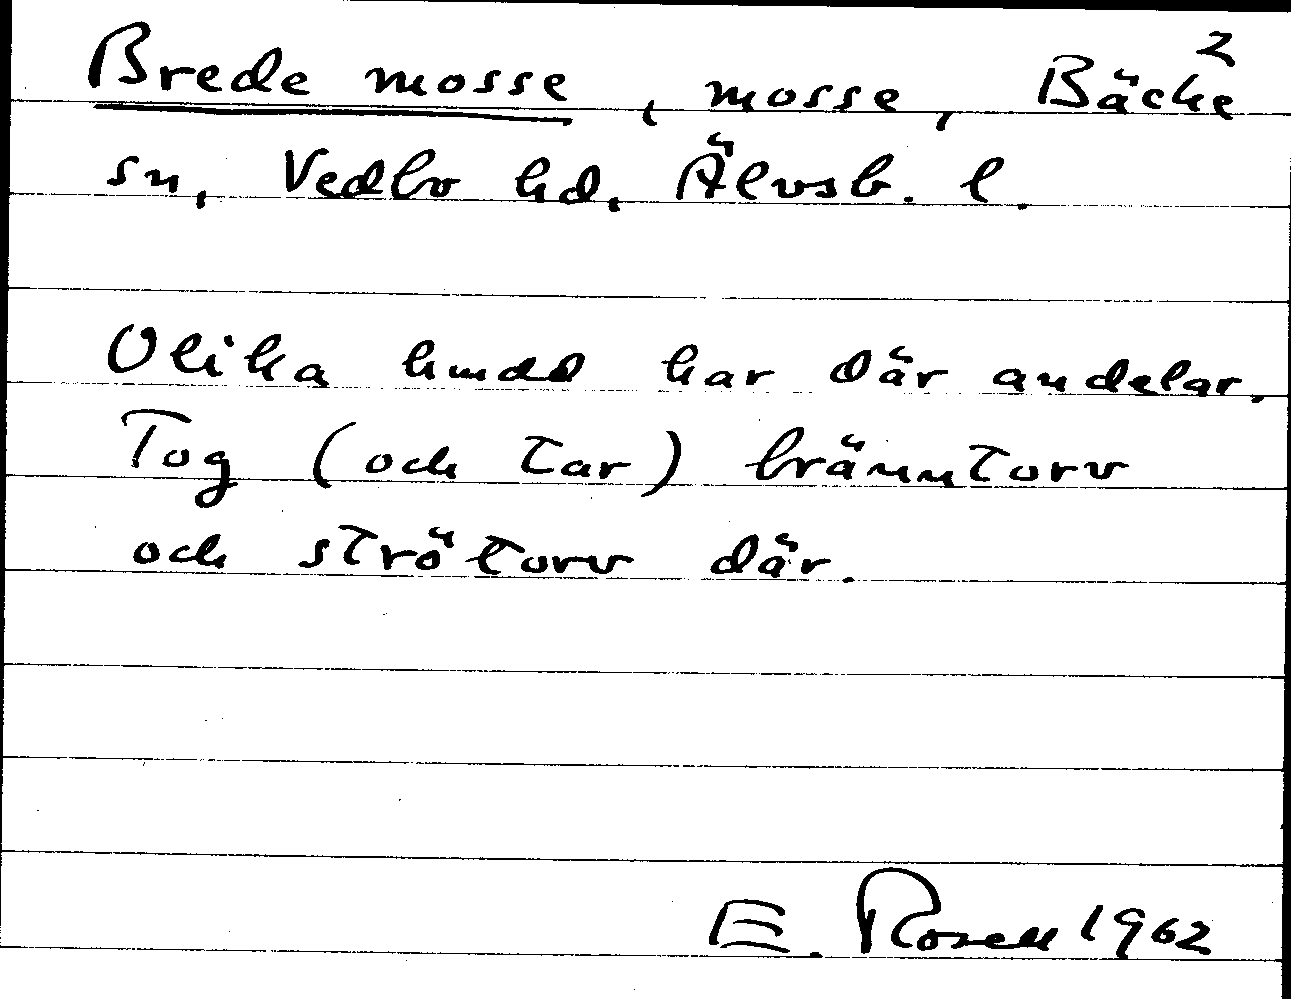 2
Brede mosse, mosse, Bäcke
sn, Vedbo hd, Älvsb. l.
Olika hmdd har där andelar.
Tog (och tar) bränntorv
och strötorv där.
E. Rosell 1962